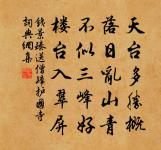 天台多勝概
落日亂山青
不似三峰好
楼台入翠屏
錢景臻送僧歸護國寺
詞典網集